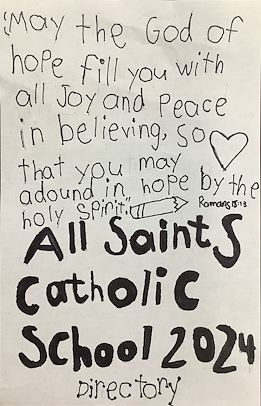 "May the God of
hope fill you with
all Joy and Peace
in believing, so
that you may
adound in hope by the
holy Spirit."
Romans 15:13
All Saints
Catholic
School 2024
Directory